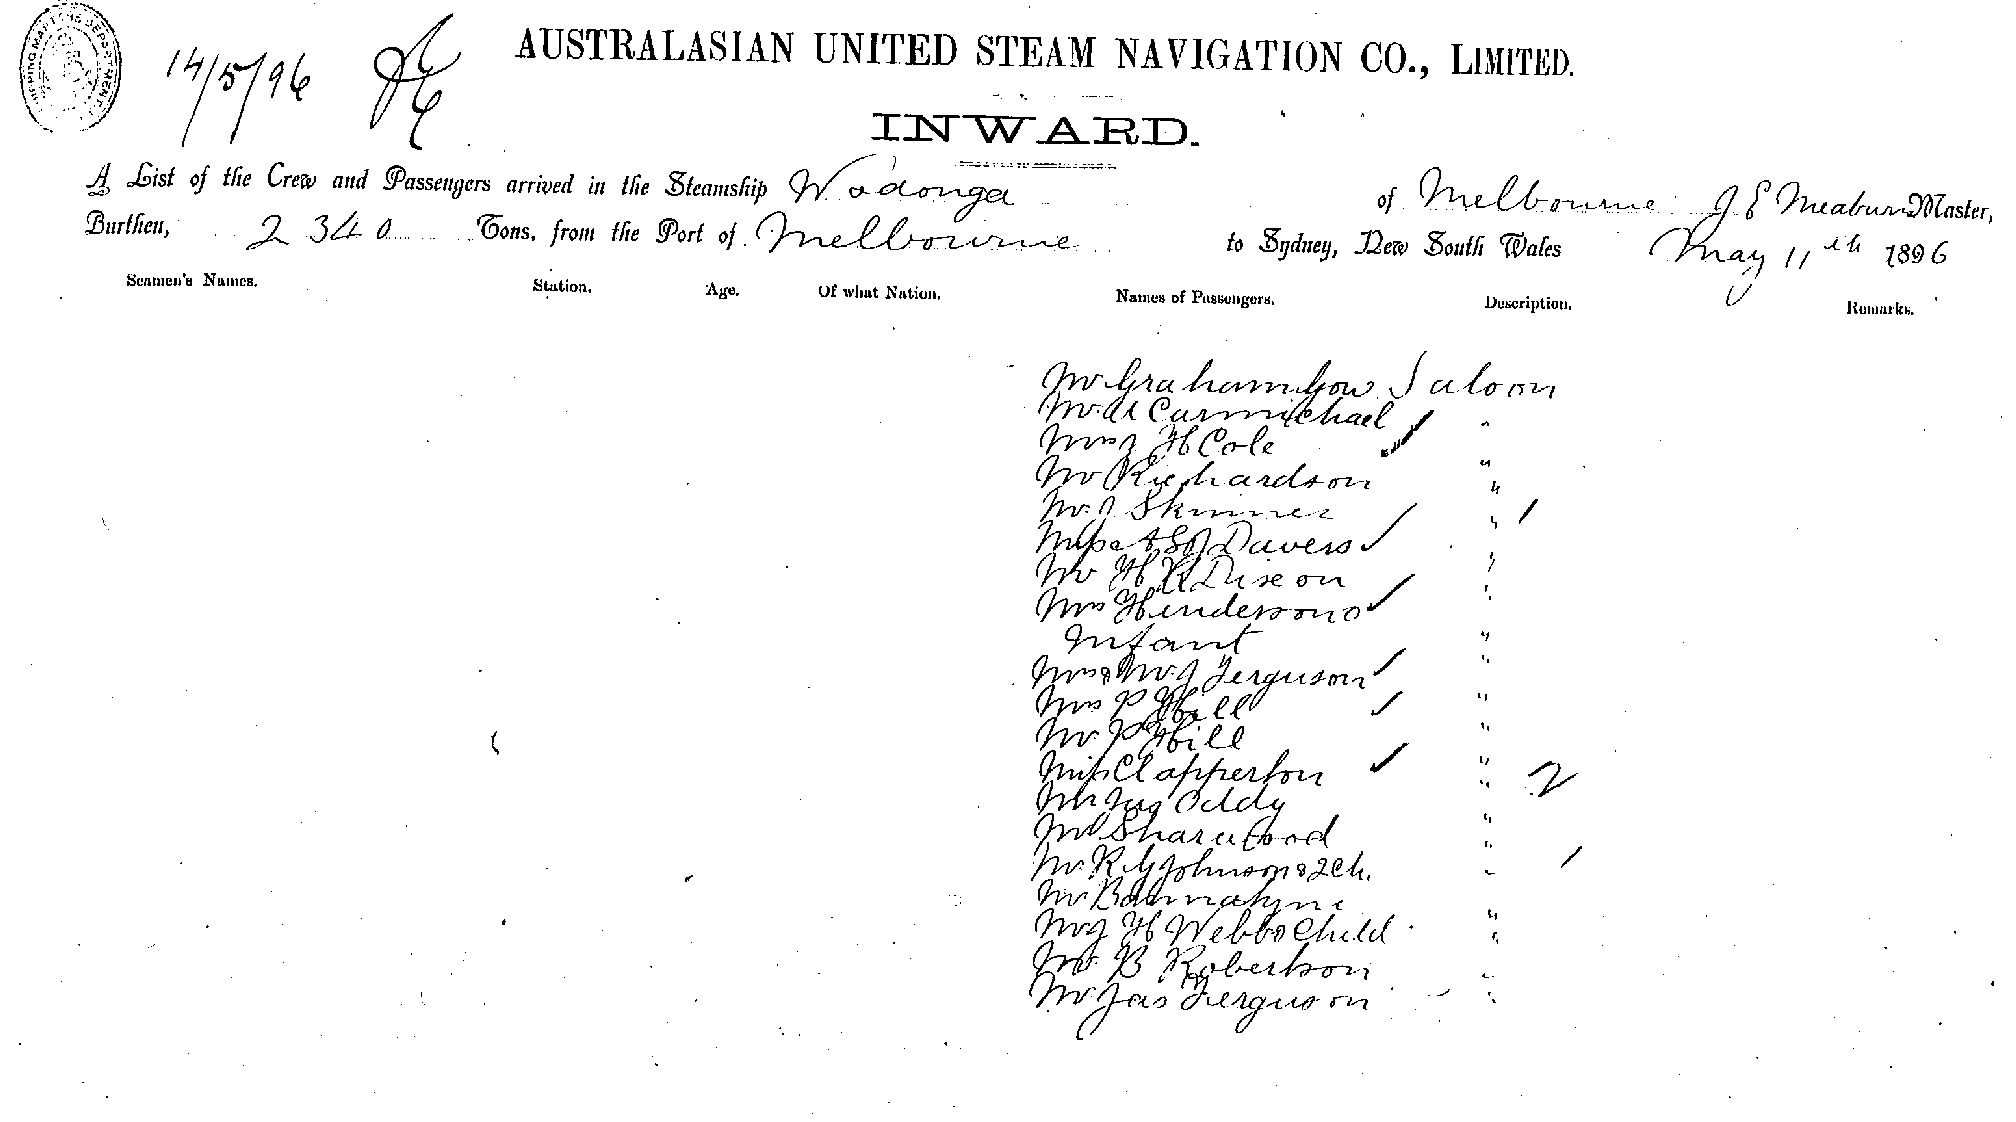 14/5/96
AUSTRALASIAN UNITED STEAM NAVIGATION CO., LIMITED.
INWARD.
A List of the Crew and Passengers arrived in the Steamship Wodonga of Melbourne J E Meaburn Master,
Burthen, 2340 Tons, from the Port of Melbourne to Sydney, New South Wales May 11th 1896
Seamen's Names. Station. Age. Of what Nation. Names of Passengers. Description. Remarks.
Mr Graham Gow Saloon
Mr A Carmichael "
Mrs J H Cole "
Mr Richardson "
Mr J Skinner "
Miss Davers "
Mr H R Dixon "
Mrs Henderson &
Infant "
Mrs & Mr J Ferguson "
Mrs P Hill "
Mr P Hill "
Miss Clapperton " 2
Mr Jas Oddy "
Mr Sharwood "
Mr R G Johnson & 2 Ch. "
Mr Bannatyne "
Mr J H Webb & Child "
Mr B Robertson "
Mr Jas Ferguson "